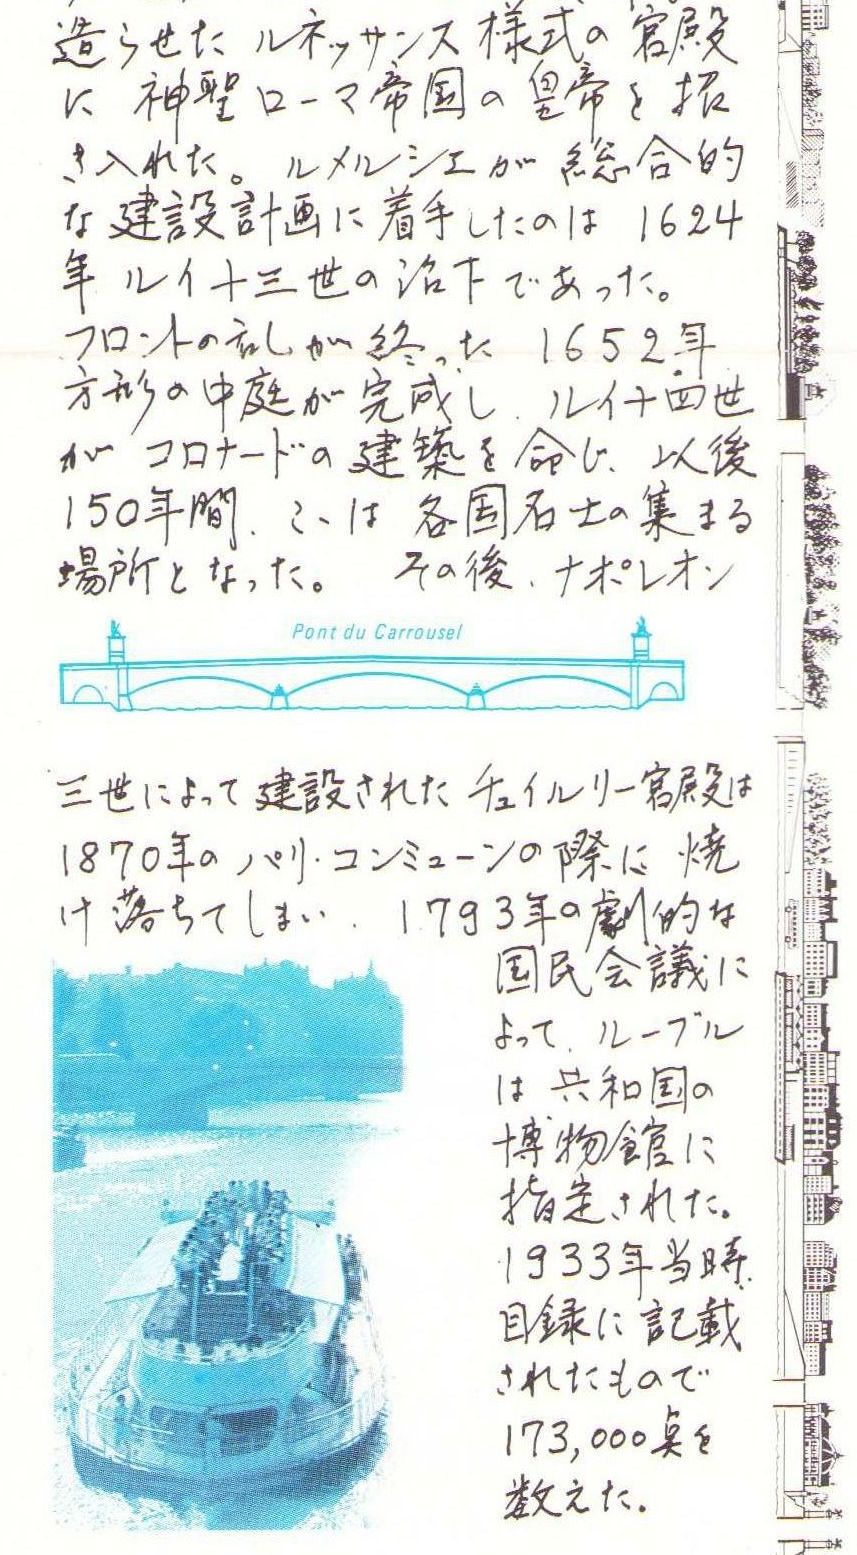 造らせた ルネッサンス様式の宮殿
に 神聖ローマ帝国の皇帝を招
き入れた。ルメルシエが 総合的
な建設計画に着手したのは 1624
年 ルイ十三世の治下であった。
フロントの乱が終った 1652年
方形の中庭が完成し、ルイ十四世
が コロナードの建築を命じ、以後
150年間、こゝは 各国名士の集まる
場所となった。 その後、ナポレオン
Pont du Carrousel
三世によって建設された チュイルリー宮殿は
1870年の パリ・コンミューンの際に 焼
け落ちてしまい、1793年の劇的な
国民会議に
よって、ルーブル
は 共和国の
博物館に
指定された。
1933年当時、
目録に記載
されたもので
173,000点を
数えた。